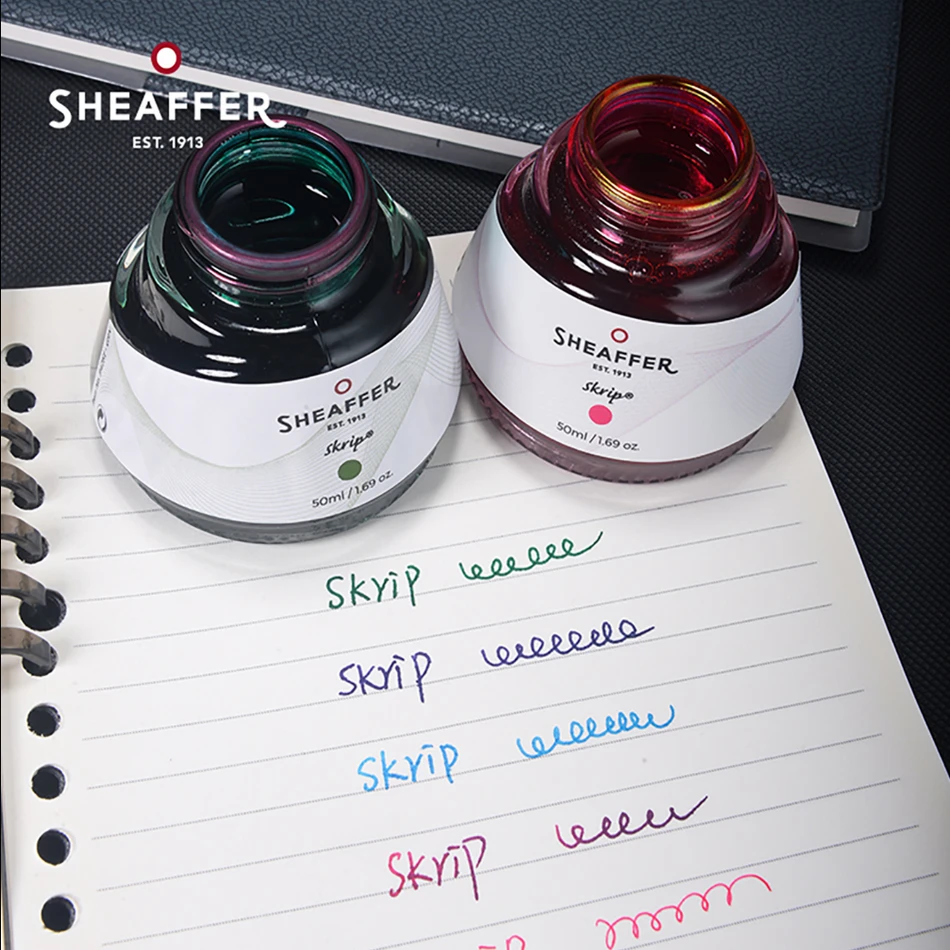 SHEAFFER
EST. 1913
SHEAFFER
EST. 1913
skrip®
50ml / 1.69 oz.
SHEAFFER
EST. 1913
skrip®
50ml / 1.69 oz.
Skrip
Skrip
Skrip
Skrip